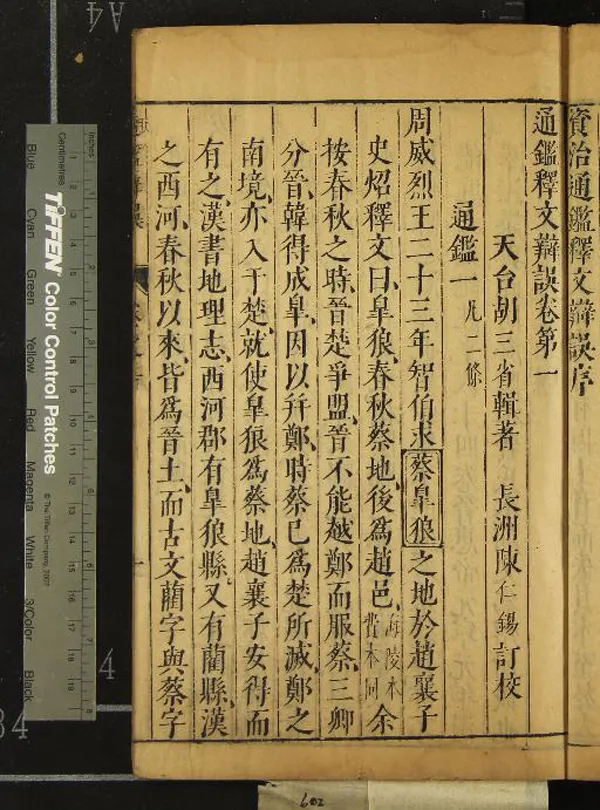 資治通鑑釋文辯誤序
通鑑釋文辯誤卷第一
天台胡三省輯著 長洲陳仁錫訂校
通鑑一 凡二條
周威烈王二十三年智伯求蔡皐狼之地於趙襄子
史炤釋文曰皐狼春秋蔡地後為趙邑海陵本費本同余
按春秋之時晉楚爭盟晉不能越鄭而服蔡三卿
分晉韓得成皐因以并鄭時蔡已為楚所滅鄭之
南境亦入于楚就使皐狼為蔡地趙襄子安得而
有之漢書地理志西河郡有皐狼縣又有藺縣漢
之西河春秋以來皆為晉土而古文藺字與蔡字
Inches
Centimetres
TIFFEN Color Control Patches
© The Tiffen Company, 2007
Blue
Cyan
Green
Yellow
Red
Magenta
White
3/Color
Black
A4
4
602